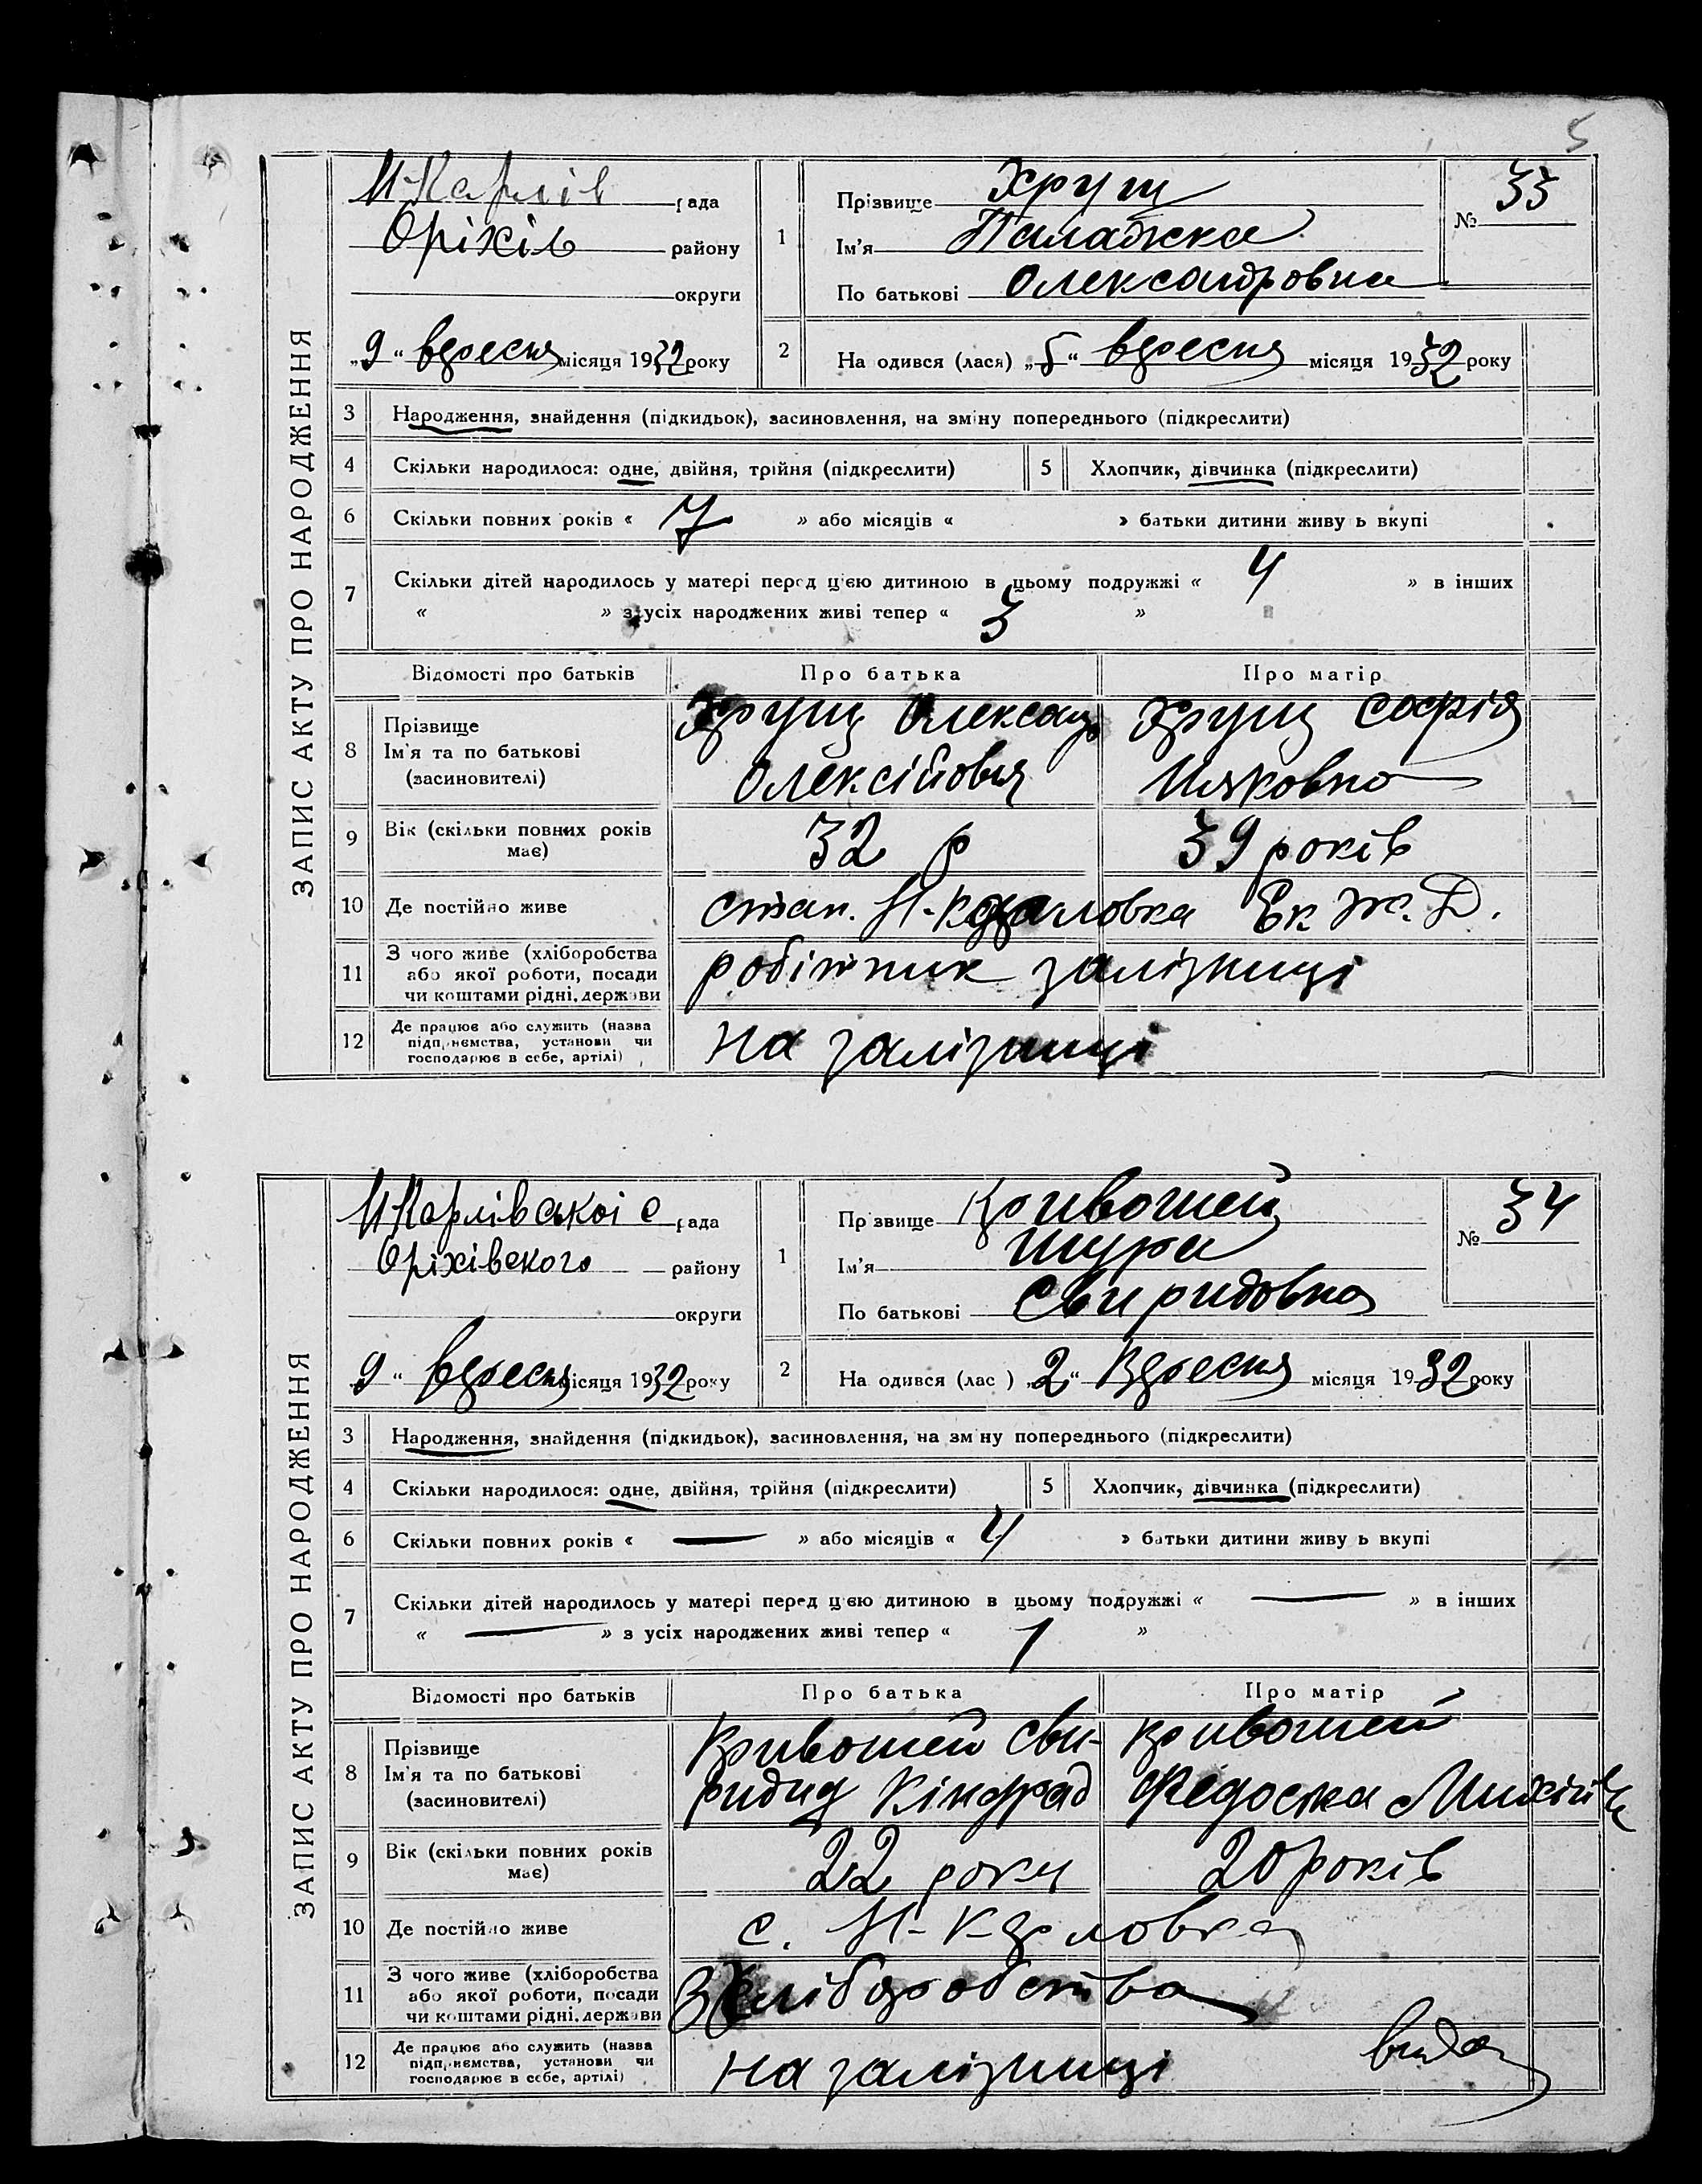 5
ЗАПИС АКТУ ПРО НАРОДЖЕННЯ
Н Карлів рада
Оріхів району
округи
„9“ вересня місяця 1932 року
1
Прізвище Хрущ
Ім'я Палажка
По батькові Олександровна
№ 33
2
На одився (лася) „5“ вересня місяця 1932 року
3 Народження, знайдення (підкидьок), засиновлення, на зміну попереднього (підкреслити)
4 Скільки народилося: одне, двійня, трійня (підкреслити) 5 Хлопчик, дівчинка (підкреслити)
6 Скільки повних років « 7 » або місяців « » батьки дитини живу ь вкупі
7 Скільки дітей народилось у матері перед цією дитиною в цьому подружжі « 4 » в інших
« » з усіх народжених живі тепер « 3 »
Відомості про батьків Про батька Про матір
8 Прізвище
Ім'я та по батькові
(засиновителі)
Хрущ Олександ
Олексійович
Хрущ Софія
Ияковна
9 Вік (скільки повних років
має)
32 р 39 років
10 Де постійно живе стан. Н-Карловка Ек Ж. Д.
11 З чого живе (хліборобства
або якої роботи, посади
чи коштами рідні, держави
робітник залізниці
12 Де працює або служить (назва
підприємства, установи чи
господарює в себе, артілі)
на залізниці
ЗАПИС АКТУ ПРО НАРОДЖЕННЯ
Н Карлівської с рада
Оріхівского району
округи
9 “ вересня місяця 1932 року
1
Пр звище Кривошей
Ім'я Шура
По батькові Свиридовна
№ 34
2
На одився (лас ) „2“ Вересня місяця 1932 року
3 Народження, знайдення (підкидьок), засиновлення, на зм ну попереднього (підкреслити)
4 Скільки народилося: одне, двійня, трійня (підкреслити) 5 Хлопчик, дівчинка (підкреслити)
6 Скільки повних років « — » або місяців « 4 » батьки дитини живу ь вкупі
7 Скільки дітей народилось у матері перед цією дитиною в цьому подружжі « — » в інших
« — » з усіх народжених живі тепер « 1 »
Відомості про батьків Про батька Про матір
8 Прізвище
Ім'я та по батькові
(засиновителі)
Кривошей Сви-
рид Кіндрад
Кривошей
Федоска
9 Вік (скільки повних років
має)
22 роки 20 років
10 Де постійно живе с. Н-Карловка
11 З чого живе (хліборобства
або якої роботи, посади
чи коштами рідні, держави
З Хліборобства
12 Де працює або служить (назва
підприємства, установи чи
господарює в себе, артілі)
на залізниці